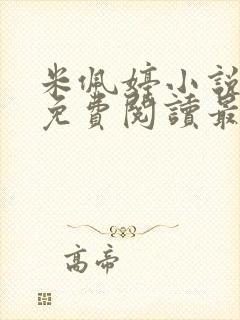 米佩婷小說
免費閱讀最
高帝